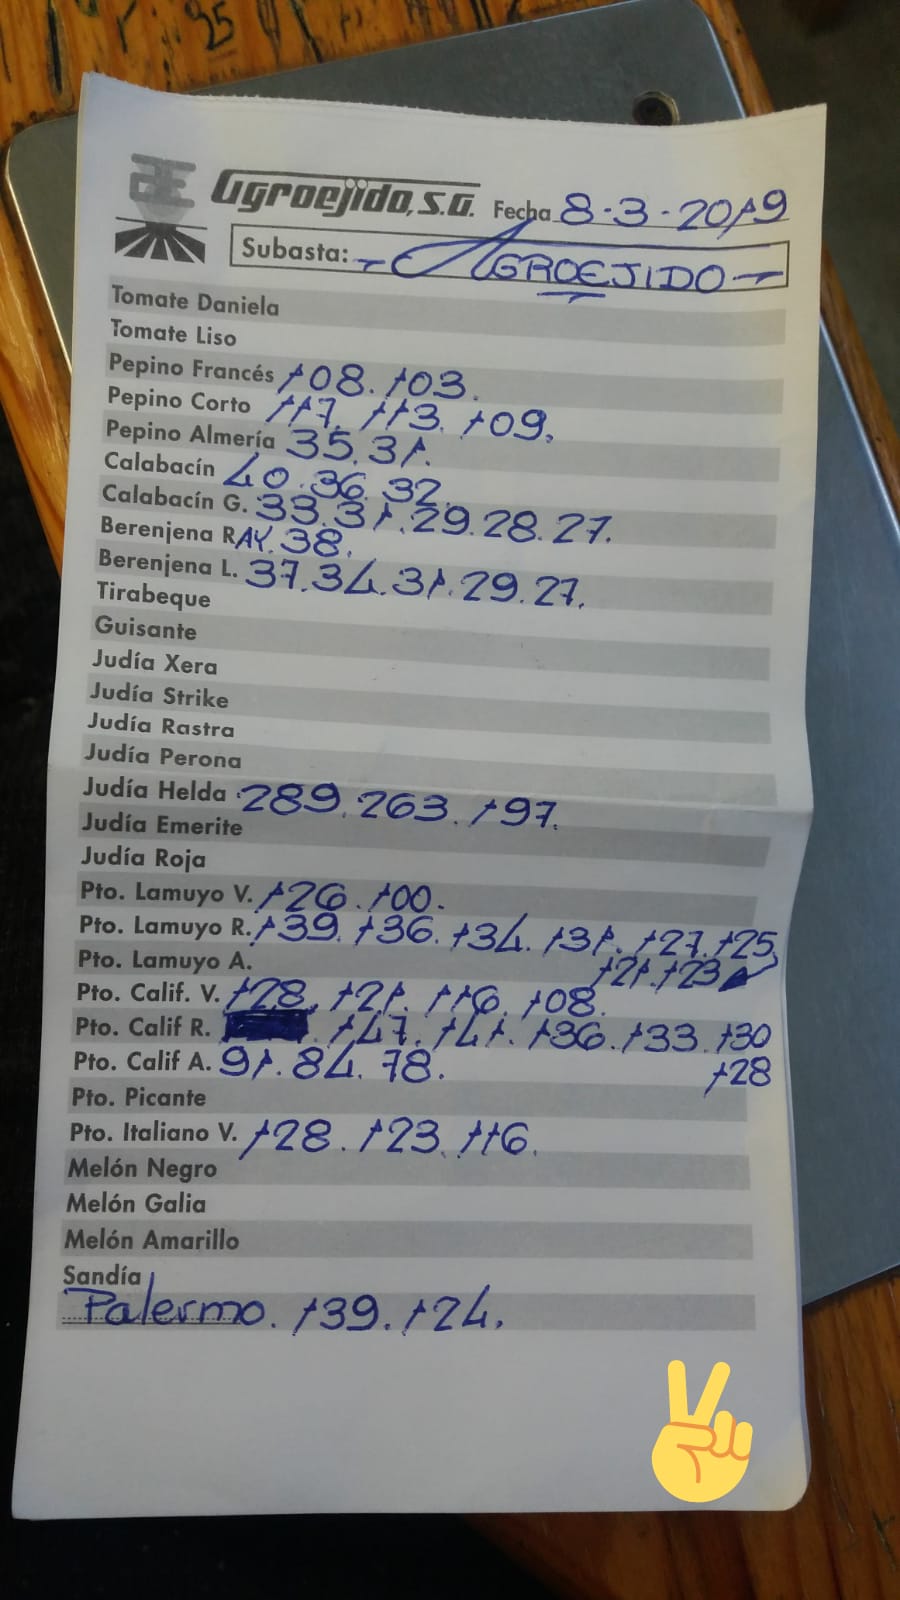 25
Agroejido, S.A. Fecha 8-3-2019
Subasta: AGROEJIDO
Tomate Daniela
Tomate Liso
Pepino Francés 108. 103.
Pepino Corto 117. 113. 109.
Pepino Almería 35. 31.
Calabacín 40. 36. 32.
Calabacín G. 33. 31. 29. 28. 27.
Berenjena RAY. 38.
Berenjena L. 37. 34. 31. 29. 27.
Tirabeque
Guisante
Judía Xera
Judía Strike
Judía Rastra
Judía Perona
Judía Helda 289. 263. 197.
Judía Emerite
Judía Roja
Pto. Lamuyo V. 126. 100.
Pto. Lamuyo R. 139. 136. 134. 131. 127. 125,
121. 123
Pto. Lamuyo A.
Pto. Calif. V. 128. 121. 116. 108.
Pto. Calif R. 147. 141. 136. 133. 130
128
Pto. Calif A. 91. 84. 78.
Pto. Picante
Pto. Italiano V. 128. 123. 116.
Melón Negro
Melón Galia
Melón Amarillo
Sandía
Palermo. 139. 124.